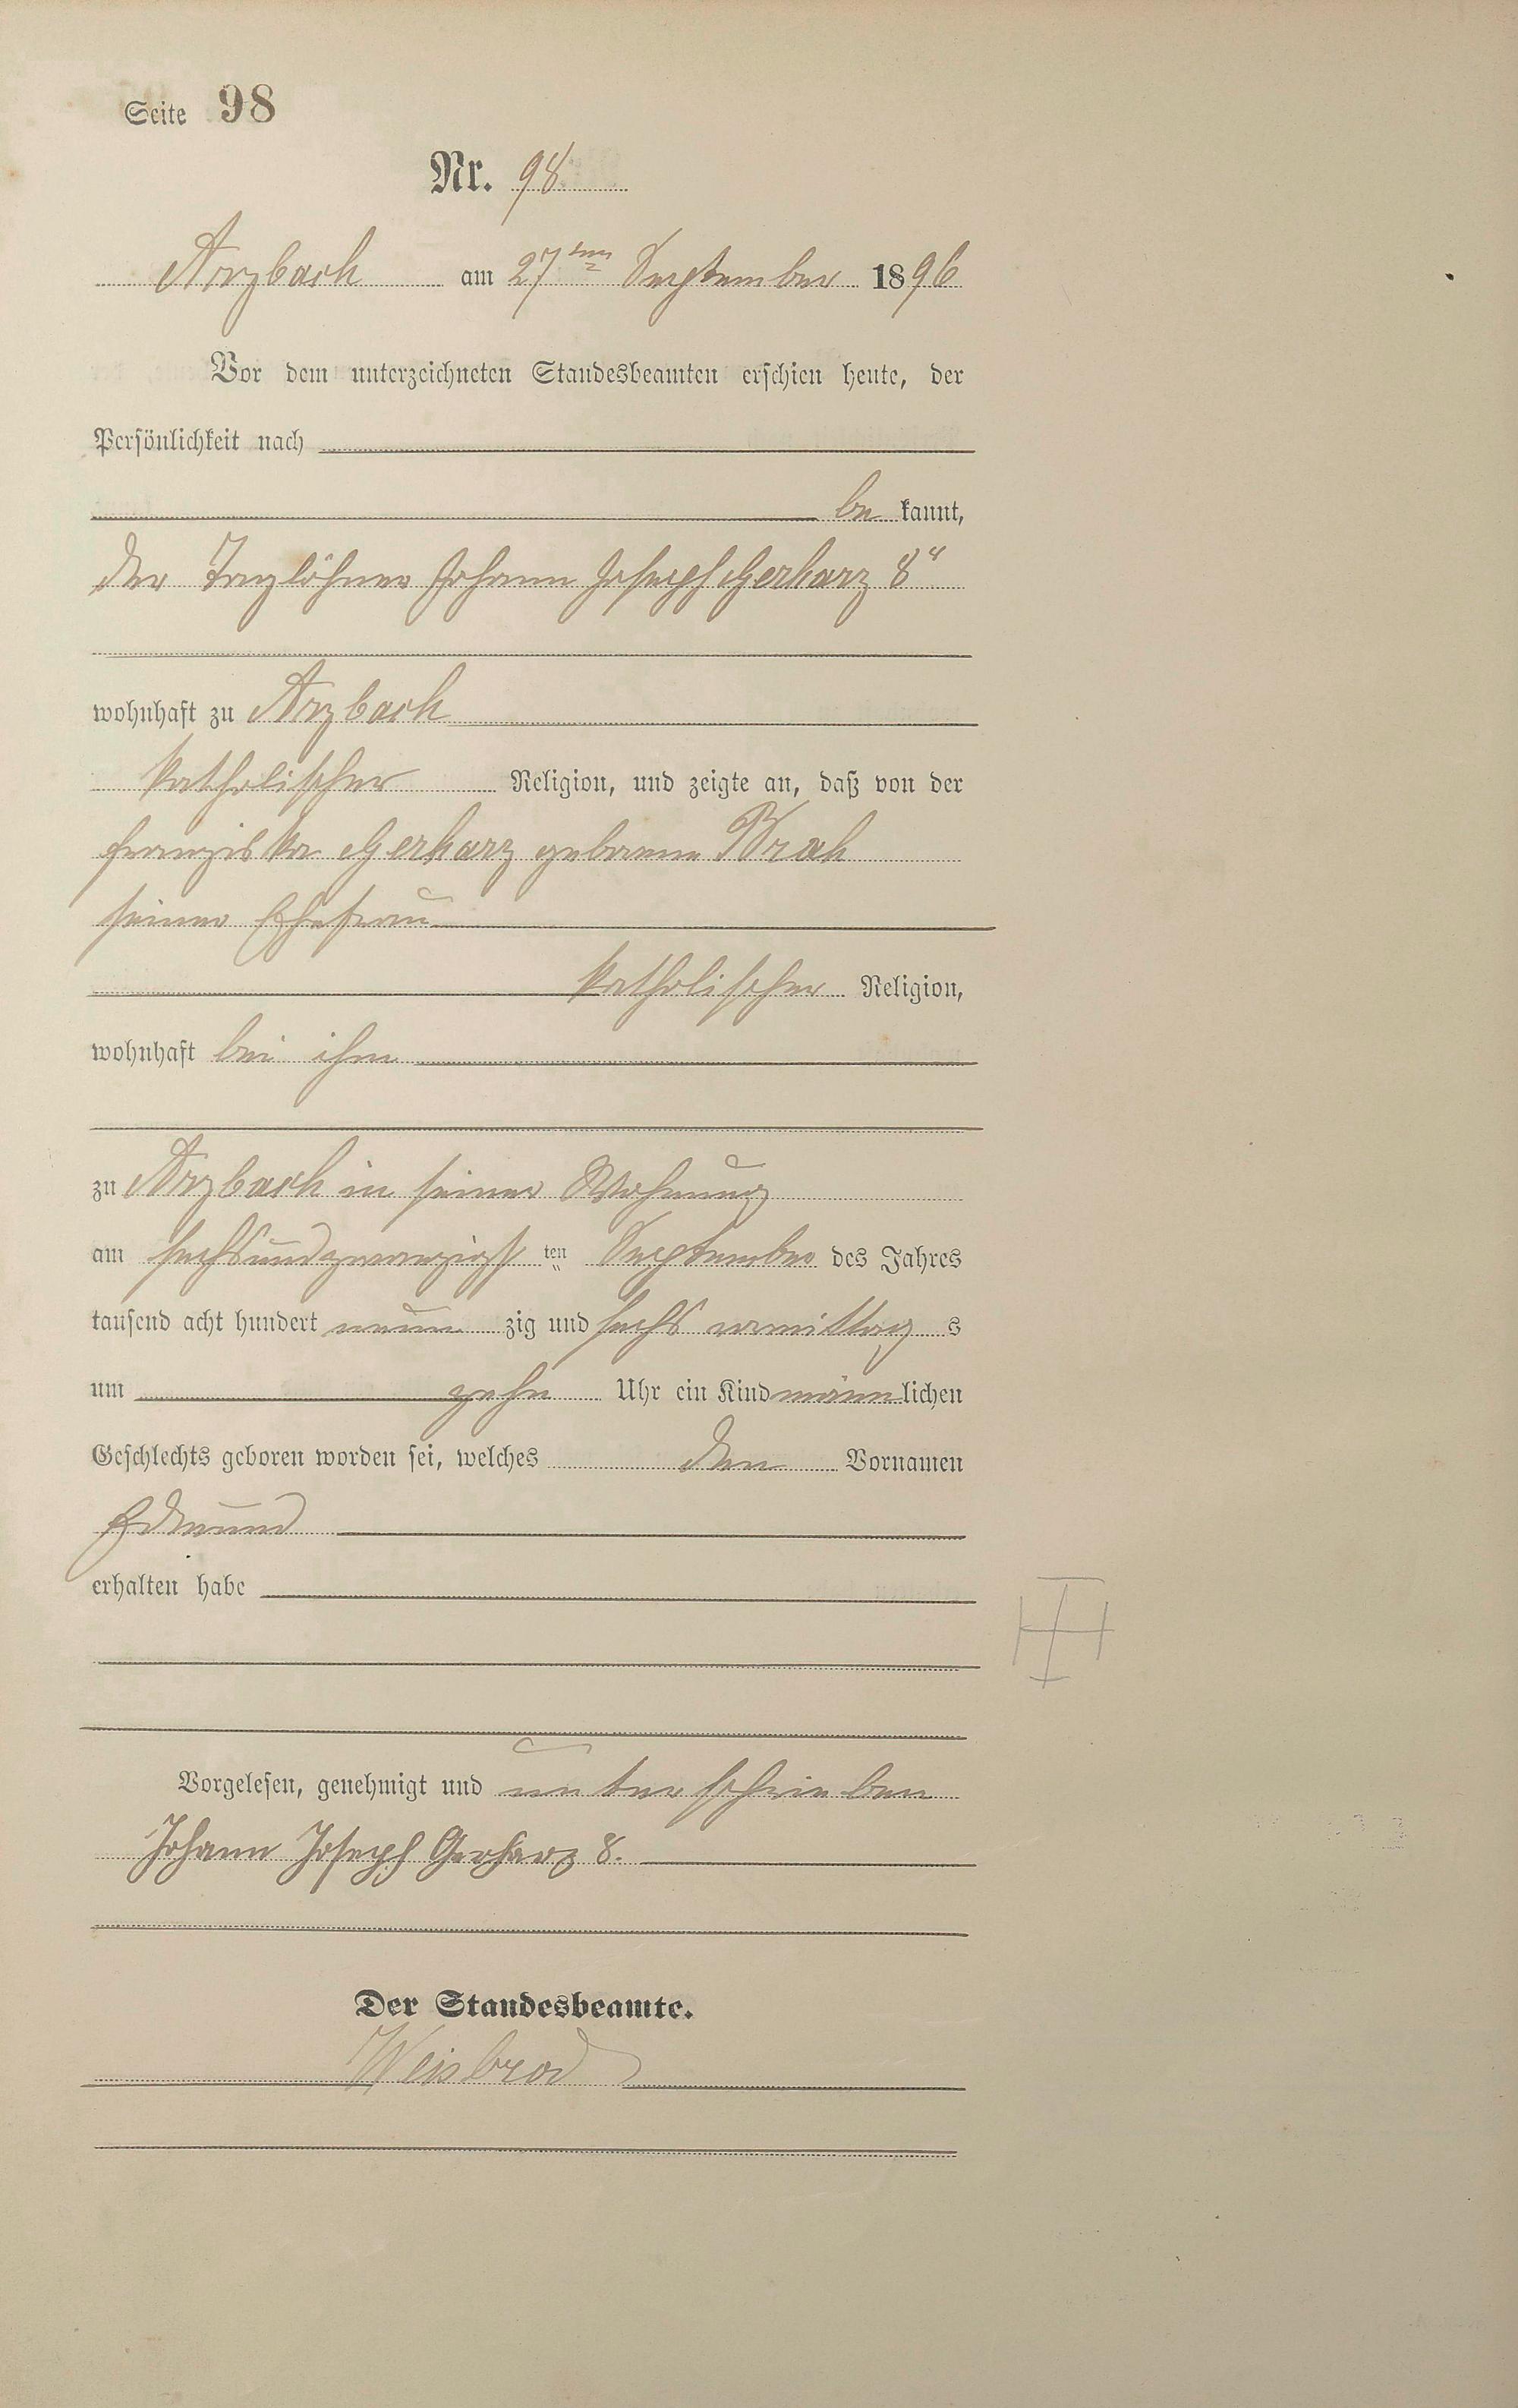 Seite 98
Nr. 98
Arzbach am 27ten September 1896
Vor dem unterzeichneten Standesbeamten erschien heute, der
Persönlichkeit nach
be kannt,
der Taglöhner Johann Joseph Gerharz 8"
wohnhaft zu Arzbach
katholischer Religion, und zeigte an, daß von der
Franziska Gerharz geborene Brah
seiner Ehefrau
katholischer Religion,
wohnhaft bei ihm
zu Arzbach in seiner Wohnung
am sechsundzwanzigst ten September des Jahres
tausend acht hundert neun zig und sechs vormittag s
um zehn Uhr ein Kind männ lichen
Geschlechts geboren worden sei, welches den Vornamen
Edmund
erhalten habe
Vorgelesen, genehmigt und unterschrieben
Johann Joseph Gerharz 8.
Der Standesbeamte.
Weisbrod